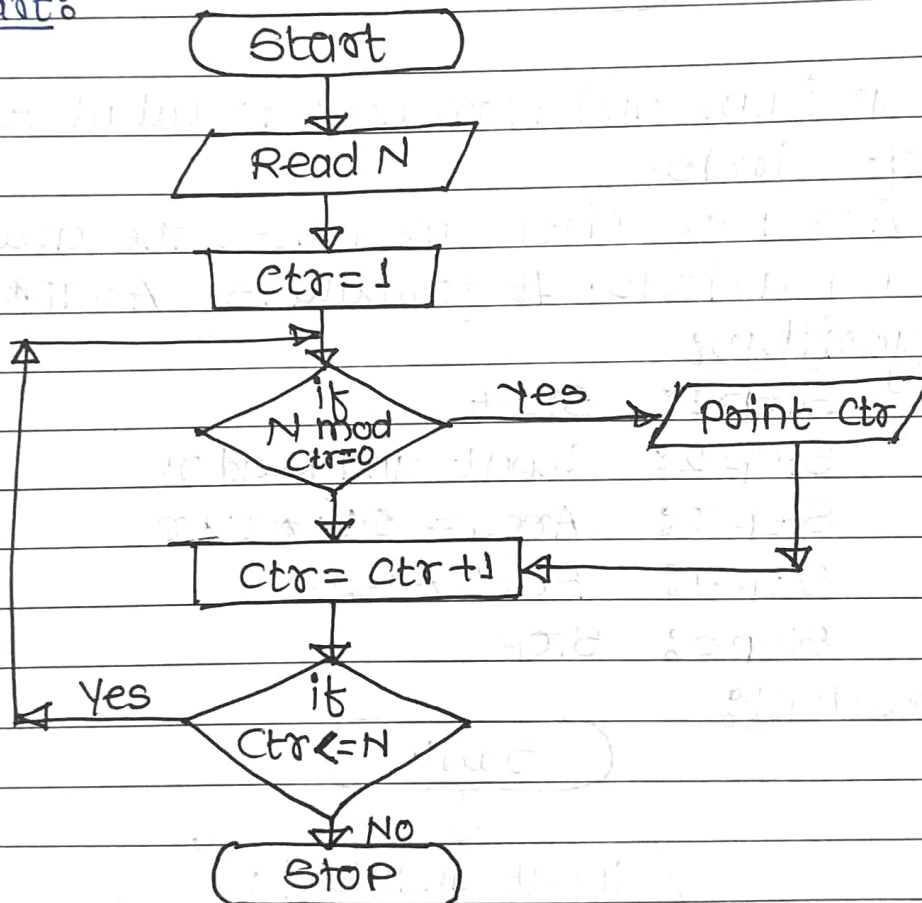 Start
Read N
Ctr=1
if
N mod
Ctr=0
Yes
print Ctr
Ctr= Ctr+1
if
Ctr<=N
Yes
No
Stop